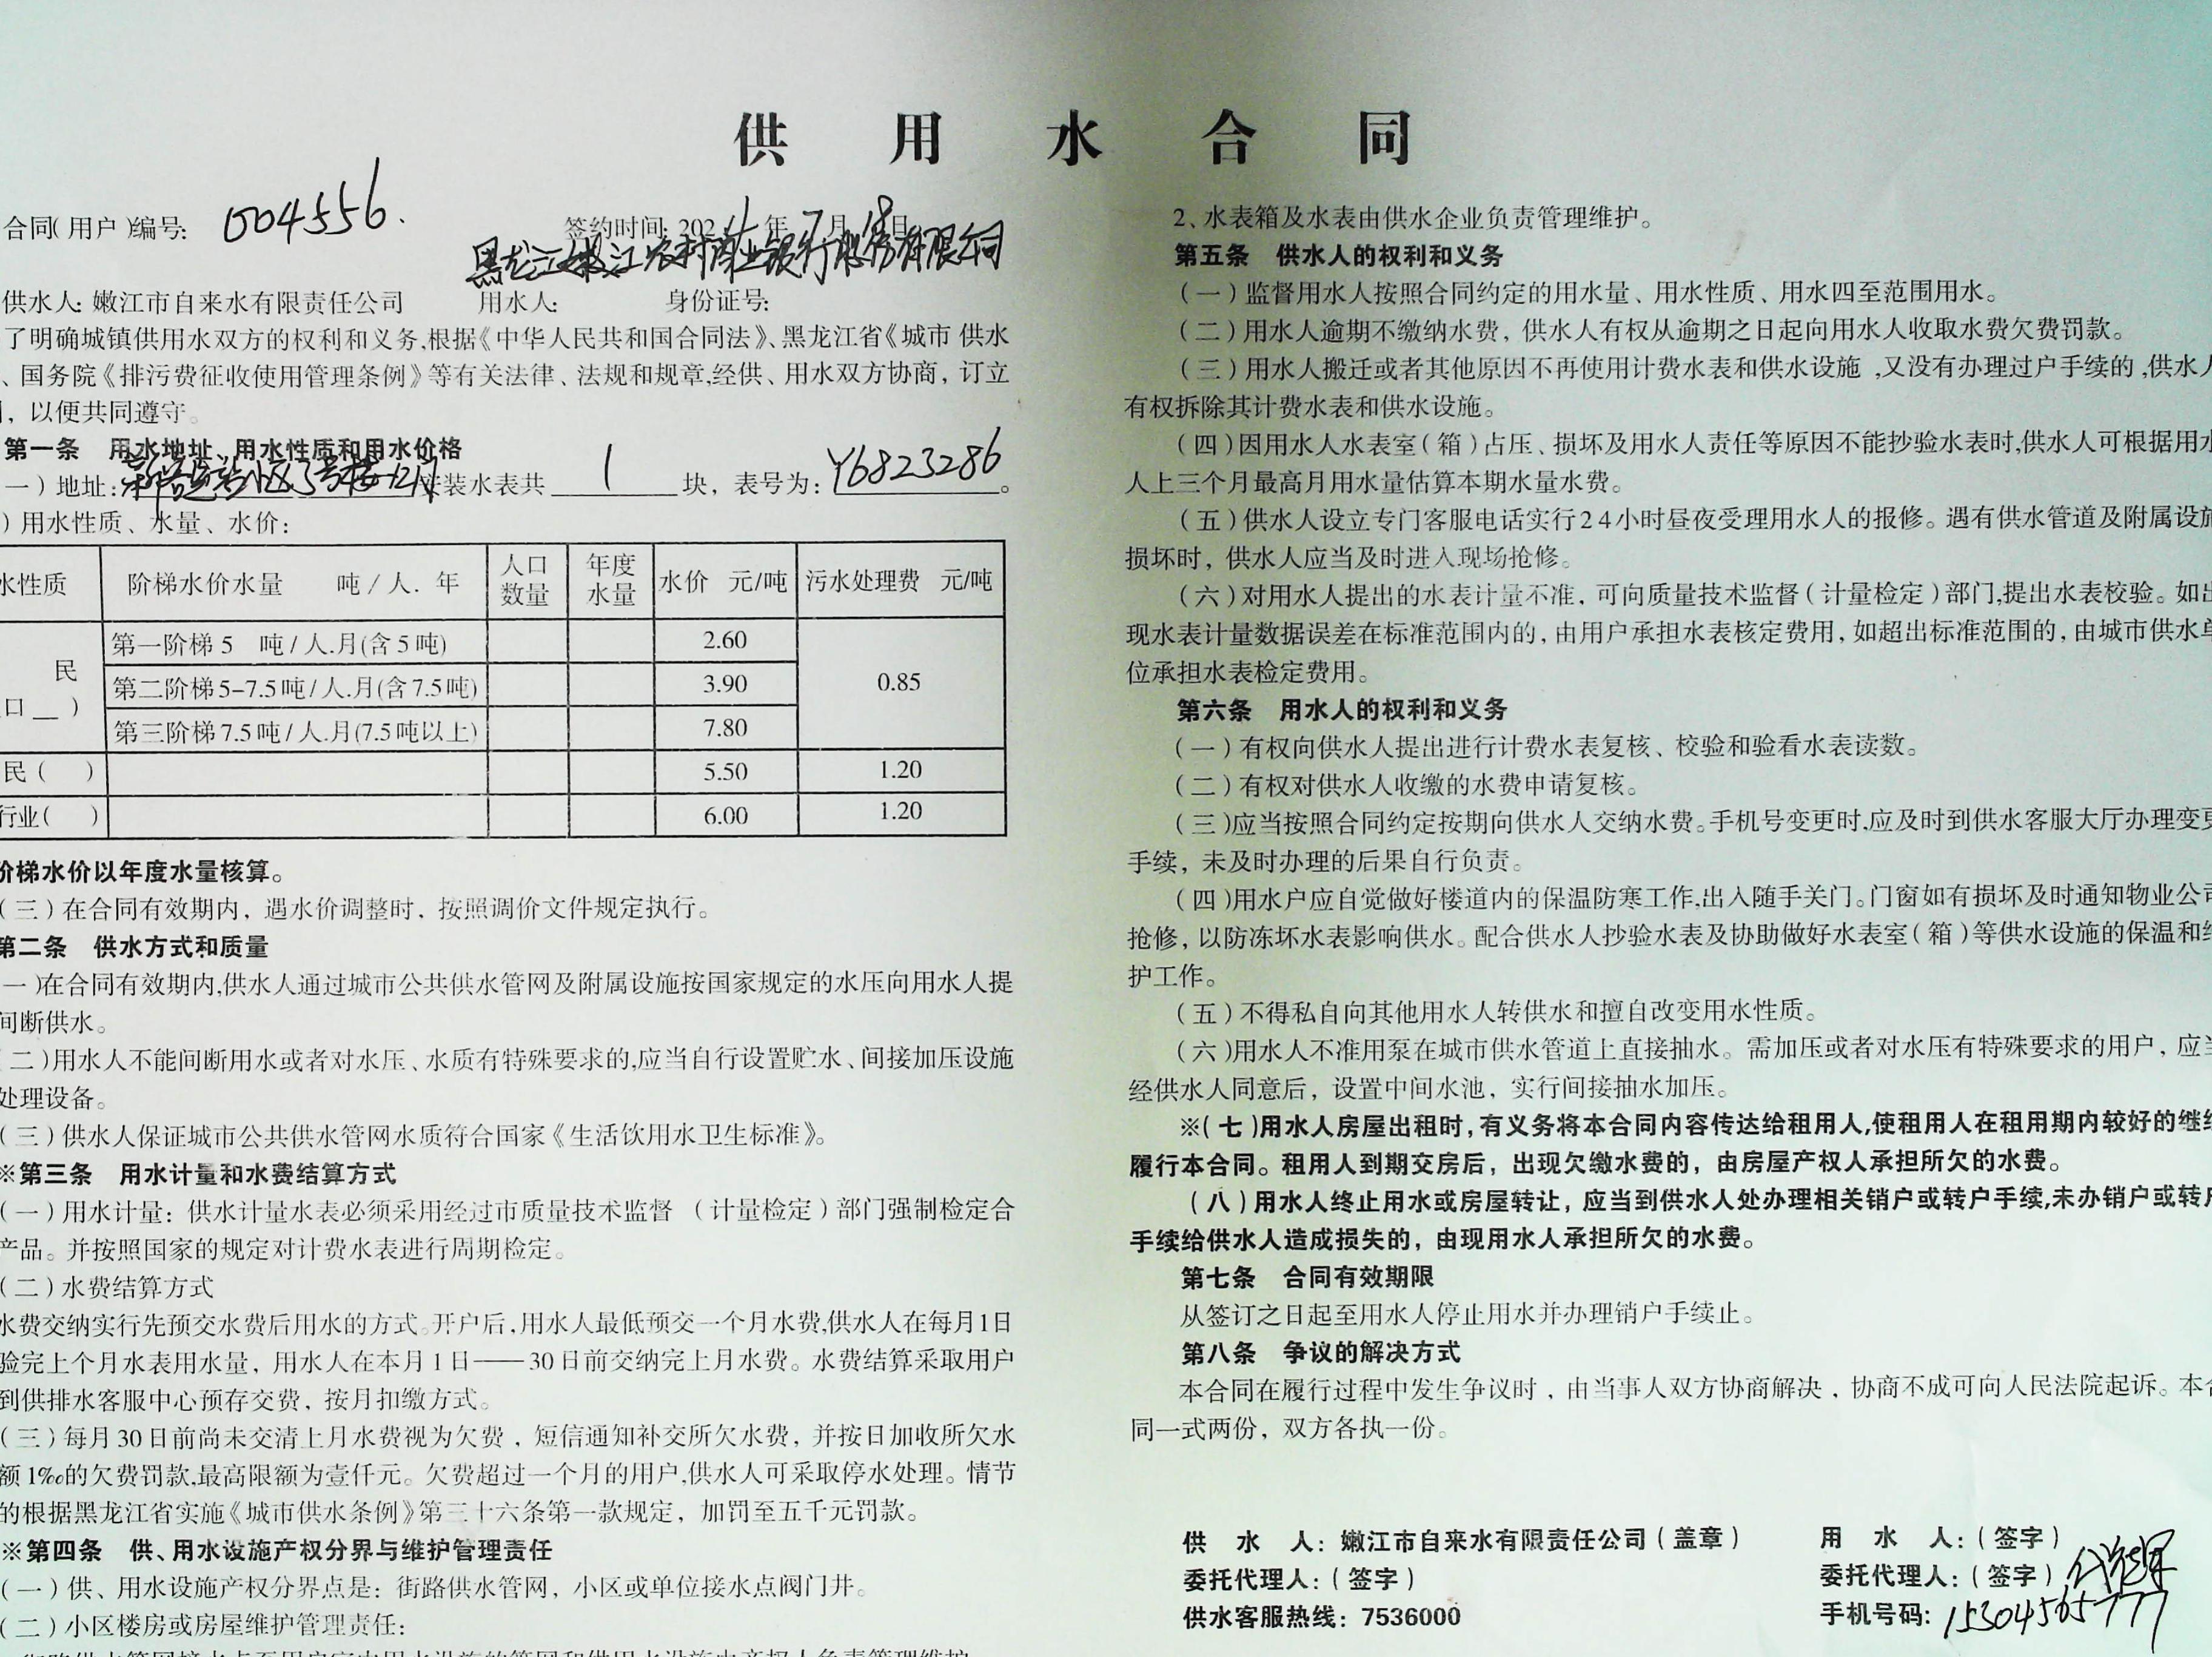 供用水合同
合同(用户)编号: 004556.
签约时间: 2024年7月18日
黑龙江嫩江农村商业银行股份有限公司
供水人: 嫩江市自来水有限责任公司 用水人: 身份证号:
了明确城镇供用水双方的权利和义务,根据《中华人民共和国合同法》、黑龙江省《城市供水
、国务院《排污费征收使用管理条例》等有关法律、法规和规章,经供、用水双方协商，订立
，以便共同遵守。
第一条 用水地址、用水性质和用水价格
一）地址: 小区3号楼 装水表共 1 块，表号为: Y6823286。
）用水性质、水量、水价:
水性质 阶梯水价水量 吨/人.年 人口数量 年度水量 水价 元/吨 污水处理费 元/吨
民
口__）
第一阶梯5 吨/人.月(含5吨) 2.60
第二阶梯5-7.5吨/人.月(含7.5吨) 3.90 0.85
第三阶梯7.5吨/人.月(7.5吨以上) 7.80
民( ) 5.50 1.20
行业( ) 6.00 1.20
阶梯水价以年度水量核算。
(三)在合同有效期内，遇水价调整时，按照调价文件规定执行。
第二条 供水方式和质量
一)在合同有效期内,供水人通过城市公共供水管网及附属设施按国家规定的水压向用水人提
间断供水。
(二)用水人不能间断用水或者对水压、水质有特殊要求的,应当自行设置贮水、间接加压设施
处理设备。
(三)供水人保证城市公共供水管网水质符合国家《生活饮用水卫生标准》。
※第三条 用水计量和水费结算方式
(一)用水计量：供水计量水表必须采用经过市质量技术监督 (计量检定)部门强制检定合
产品。并按照国家的规定对计费水表进行周期检定。
(二)水费结算方式
水费交纳实行先预交水费后用水的方式。开户后,用水人最低预交一个月水费,供水人在每月1日
验完上个月水表用水量，用水人在本月1日——30日前交纳完上月水费。水费结算采取用户
到供排水客服中心预存交费，按月扣缴方式。
(三)每月30日前尚未交清上月水费视为欠费，短信通知补交所欠水费，并按日加收所欠水
额1‰的欠费罚款,最高限额为壹仟元。欠费超过一个月的用户,供水人可采取停水处理。情节
的根据黑龙江省实施《城市供水条例》第三十六条第一款规定，加罚至五千元罚款。
※第四条 供、用水设施产权分界与维护管理责任
(一)供、用水设施产权分界点是：街路供水管网，小区或单位接水点阀门井。
(二)小区楼房或房屋维护管理责任：
2、水表箱及水表由供水企业负责管理维护。
第五条 供水人的权利和义务
(一)监督用水人按照合同约定的用水量、用水性质、用水四至范围用水。
(二)用水人逾期不缴纳水费，供水人有权从逾期之日起向用水人收取水费欠费罚款。
(三)用水人搬迁或者其他原因不再使用计费水表和供水设施 ,又没有办理过户手续的,供水人
有权拆除其计费水表和供水设施。
(四)因用水人水表室(箱)占压、损坏及用水人责任等原因不能抄验水表时,供水人可根据用水
人上三个月最高月用水量估算本期水量水费。
(五)供水人设立专门客服电话实行24小时昼夜受理用水人的报修。遇有供水管道及附属设施
损坏时，供水人应当及时进入现场抢修。
(六)对用水人提出的水表计量不准，可向质量技术监督(计量检定)部门,提出水表校验。如出
现水表计量数据误差在标准范围内的，由用户承担水表核定费用，如超出标准范围的，由城市供水单
位承担水表检定费用。
第六条 用水人的权利和义务
(一)有权向供水人提出进行计费水表复核、校验和验看水表读数。
(二)有权对供水人收缴的水费申请复核。
(三)应当按照合同约定按期向供水人交纳水费。手机号变更时,应及时到供水客服大厅办理变更
手续，未及时办理的后果自行负责。
(四)用水户应自觉做好楼道内的保温防寒工作,出入随手关门。门窗如有损坏及时通知物业公司
抢修，以防冻坏水表影响供水。配合供水人抄验水表及协助做好水表室(箱)等供水设施的保温和维
护工作。
(五)不得私自向其他用水人转供水和擅自改变用水性质。
(六)用水人不准用泵在城市供水管道上直接抽水。需加压或者对水压有特殊要求的用户，应当
经供水人同意后，设置中间水池，实行间接抽水加压。
※(七)用水人房屋出租时,有义务将本合同内容传达给租用人,使租用人在租用期内较好的继续
履行本合同。租用人到期交房后，出现欠缴水费的，由房屋产权人承担所欠的水费。
(八)用水人终止用水或房屋转让，应当到供水人处办理相关销户或转户手续,未办销户或转户
手续给供水人造成损失的，由现用水人承担所欠的水费。
第七条 合同有效期限
从签订之日起至用水人停止用水并办理销户手续止。
第八条 争议的解决方式
本合同在履行过程中发生争议时，由当事人双方协商解决，协商不成可向人民法院起诉。本合
同一式两份，双方各执一份。
供 水 人：嫩江市自来水有限责任公司(盖章) 用 水 人：(签字)
委托代理人：(签字) 委托代理人：(签字)
供水客服热线：7536000 手机号码: 15304565777